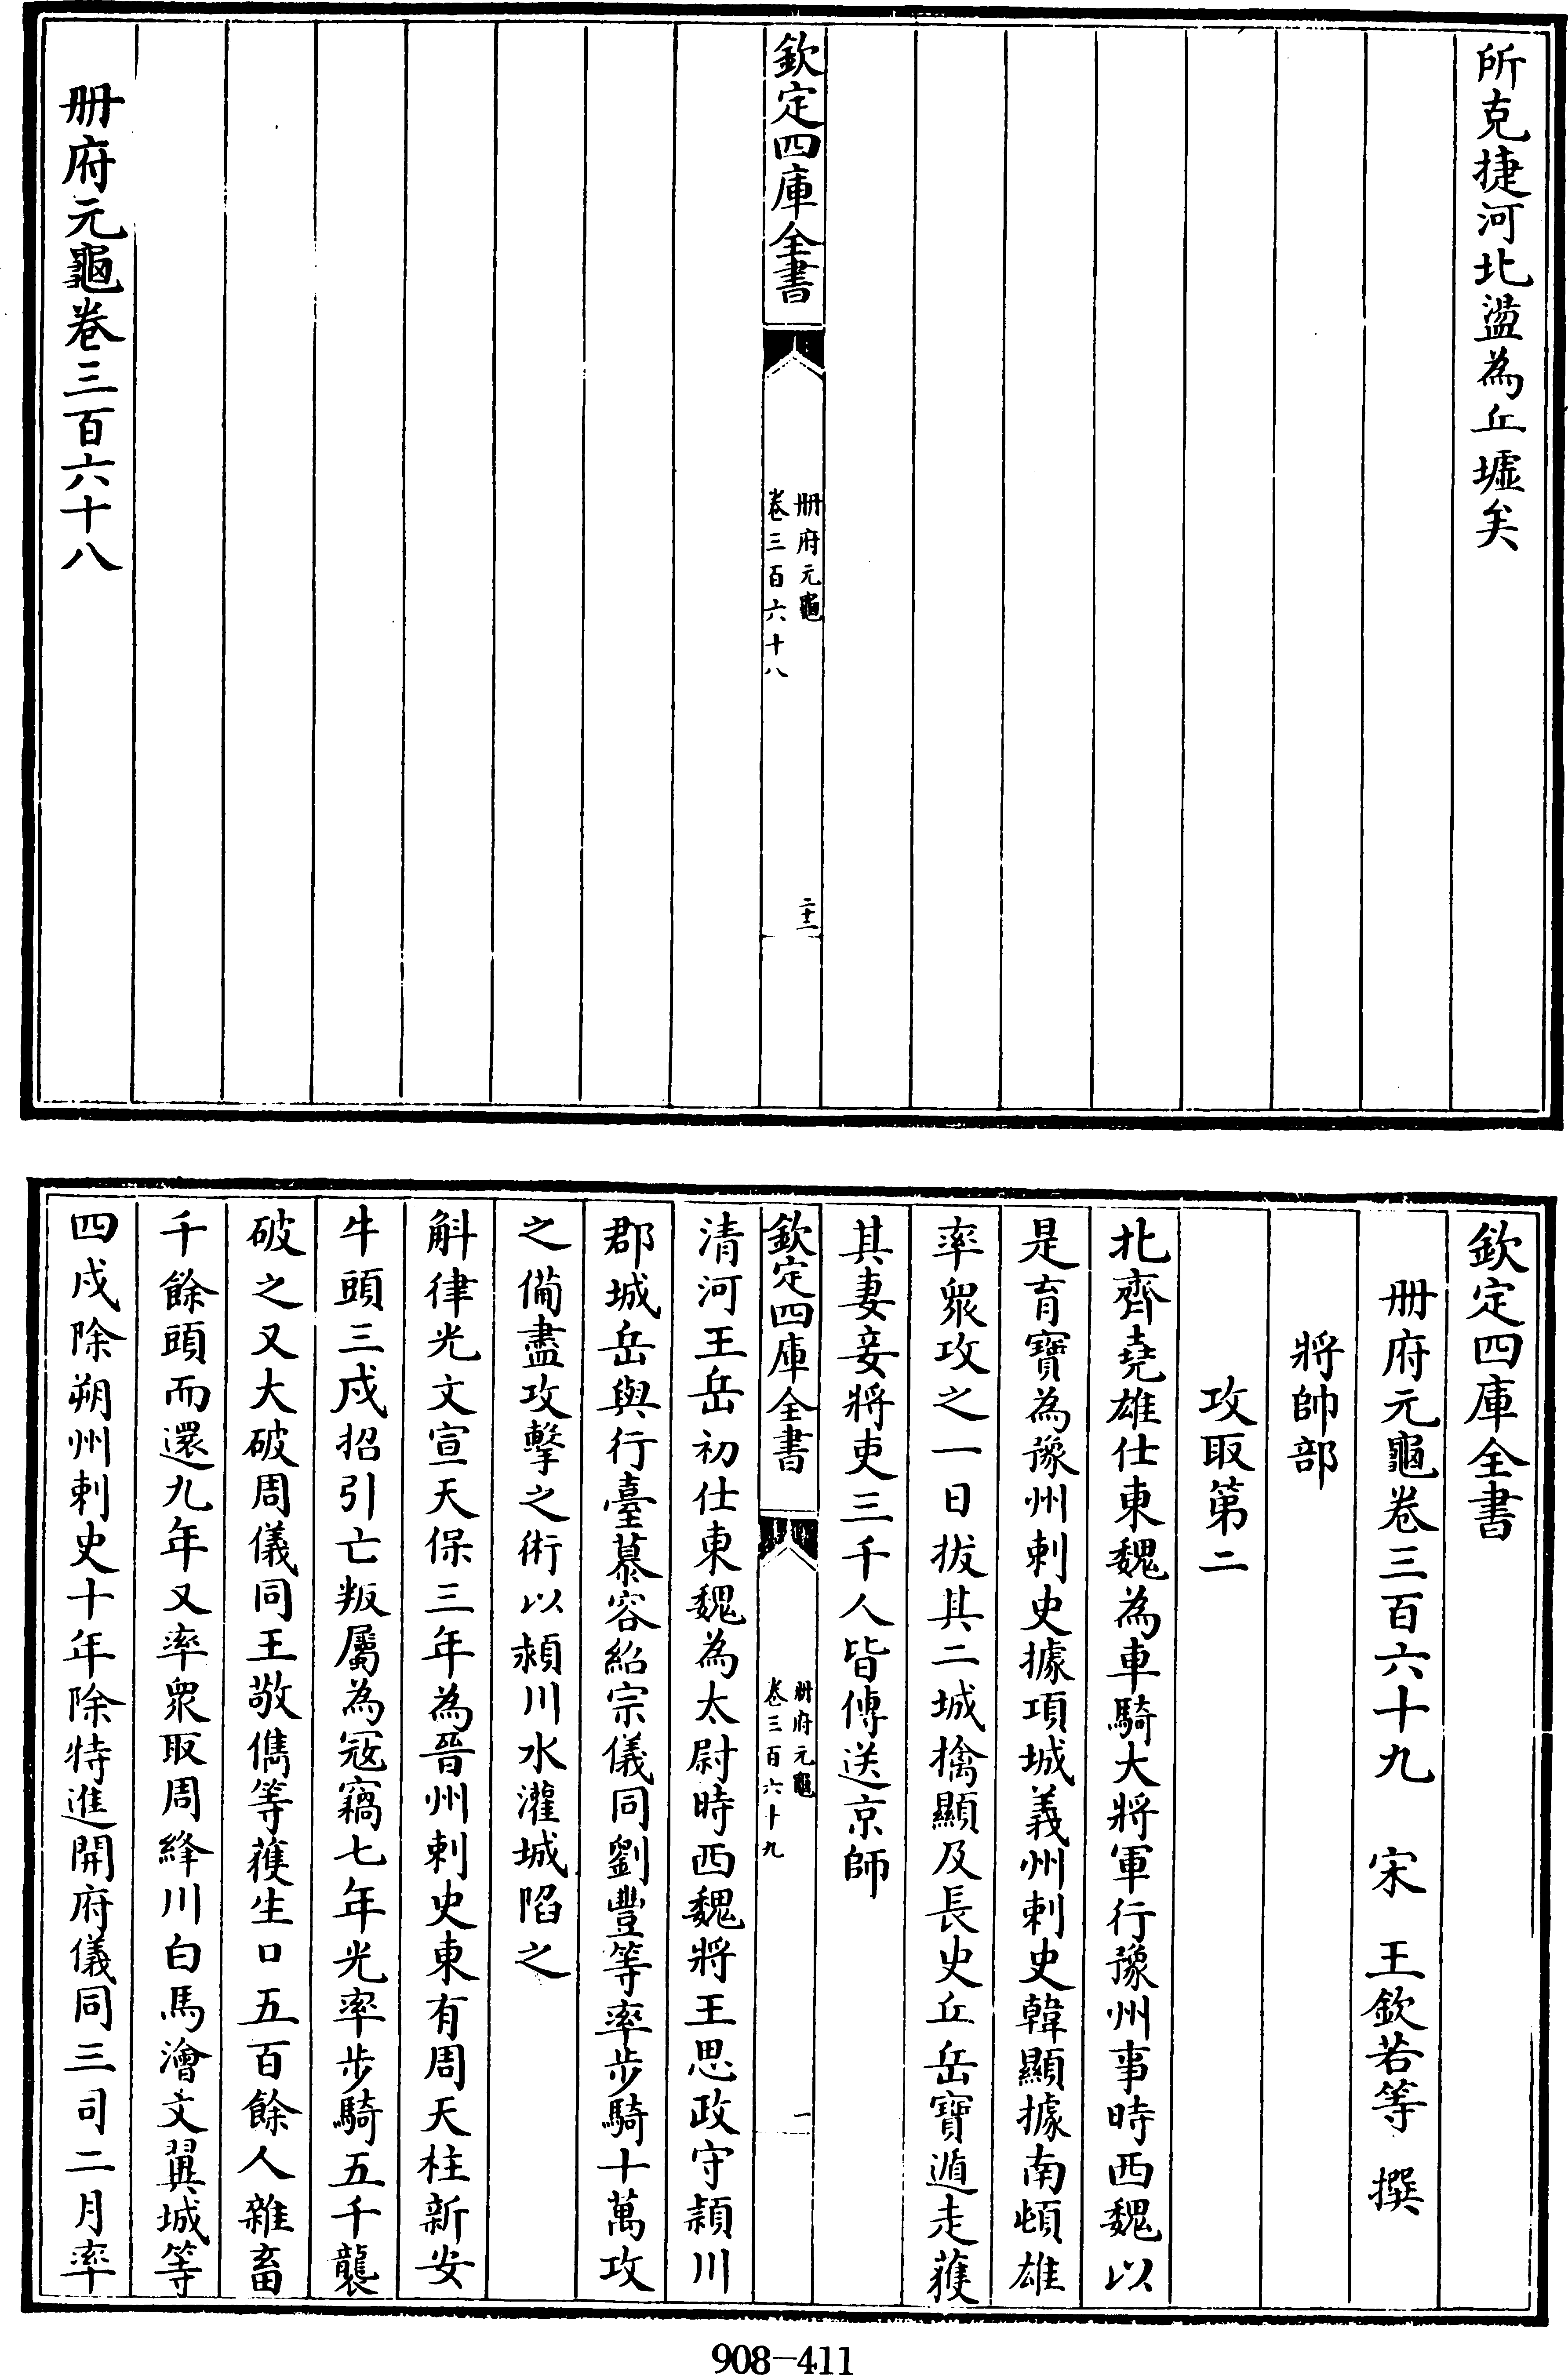 所克捷河北盪為丘墟矣
欽定四庫全書
冊府元龜
卷三百六十八
二十二
冊府元龜卷三百六十八
欽定四庫全書
冊府元龜卷三百六十九 宋 王欽若等 撰
將帥部
攻取第二
北齊堯雄仕東魏為車騎大將軍行豫州事時西魏以
是育寶為豫州刺史據項城義州刺史韓顯據南頓雄
率衆攻之一日拔其二城擒顯及長史丘岳寶遁走獲
其妻妾將吏三千人皆傳送京師
欽定四庫全書
冊府元龜
卷三百六十九
一
清河王岳初仕東魏為太尉時西魏將王思政守潁川
郡城岳與行臺慕容紹宗儀同劉豐等率步騎十萬攻
之備盡攻擊之術以潁川水灌城陷之
斛律光文宣天保三年為晉州刺史東有周天柱新安
牛頭三戍招引亡叛屬為寇竊七年光率步騎五千襲
破之又大破周儀同王敬儁等獲生口五百餘人雜畜
千餘頭而還九年又率衆取周絳川白馬澮文翼城等
四戍除朔州刺史十年除特進開府儀同三司二月率
908-411